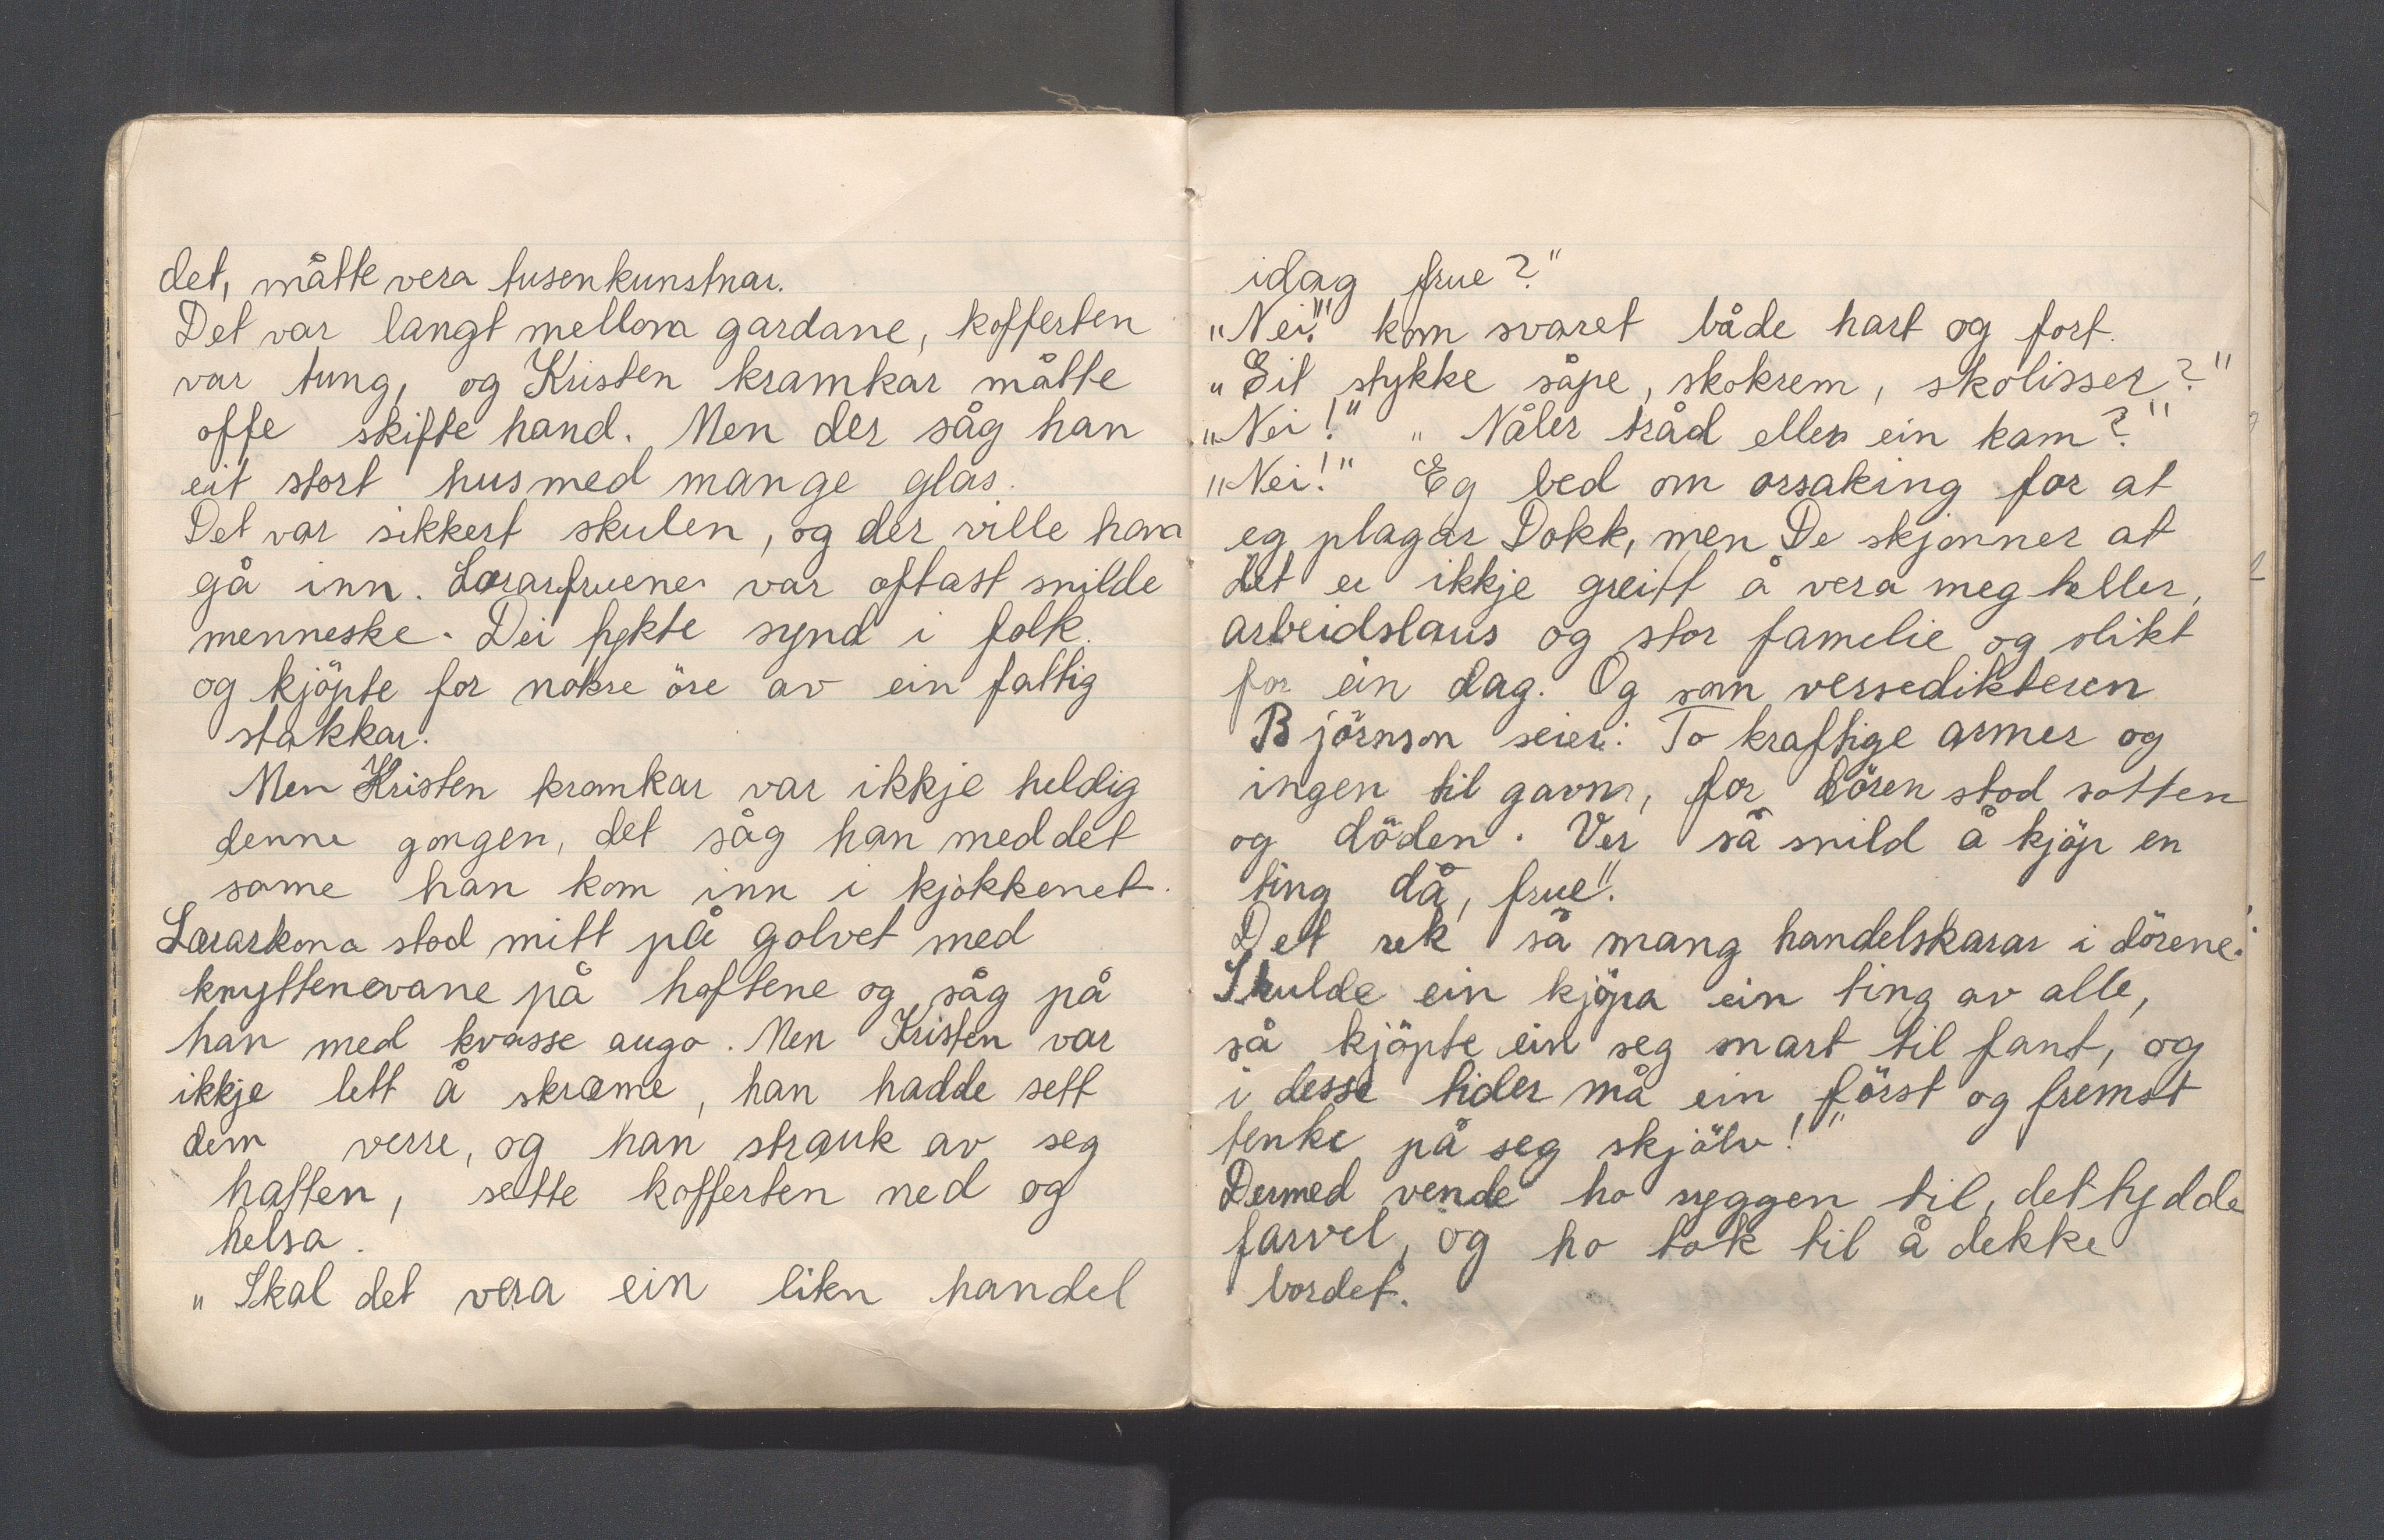 det, måtte vera tusenkunstnar.
Det var langt mellom gardane, kofferten
var tung, og Kristen kramkar måtte
offe skifte hand. Men der såg han
eit stort hus med mange glas.
Det var sikkert skulen, og der ville han
gå inn. Lærarfruene var oftast snilde
menneske. Dei fykte synd i folk
og kjöpte for nokre öre av ein fattig
stakkar.
Men Kristen kramkar var ikkje heldig
denne gongen, det såg han med det
same han kom inn i kjökkenet.
Lærarkona stod mitt på golvet med
knyttenevane på hoftene og såg på
han med kvasse augo. Men Kristen var
ikkje lett å skræme, han hadde sett
dem verre, og han strauk av seg
hatten, sette kofferten ned og
helsa.
„Skal det vera ein liten handel
idag frue?"
„Nei!" kom svaret både hart og fort.
„Eit stykke såpe, skokrem, skolisser?"
„Nei!" „Nåler tråd eller ein kam?"
„Nei!" Eg bed om orsaking for at
eg plagar Dokk, men De skjønner at
det er ikkje greitt å vera meg heller,
arbeidslaus og stor familie og slikt
for ein dag. Og som versedikteren
Björnson seier: To kraftige armer og
ingen til gavn, for dören stod sotten
og döden. Ver så snild å kjöp en
ting då, frue".
Det rek så mang handelskarar i dörene.
Skulde ein kjöpa ein ting av alle,
så kjöpte ein seg snart til fant, og
i desse tider må ein först og fremst
tenke på seg skjölv!"
Dermed vende ho ryggen til, det tydde
farvel, og ho tok til å dekke
bordet.